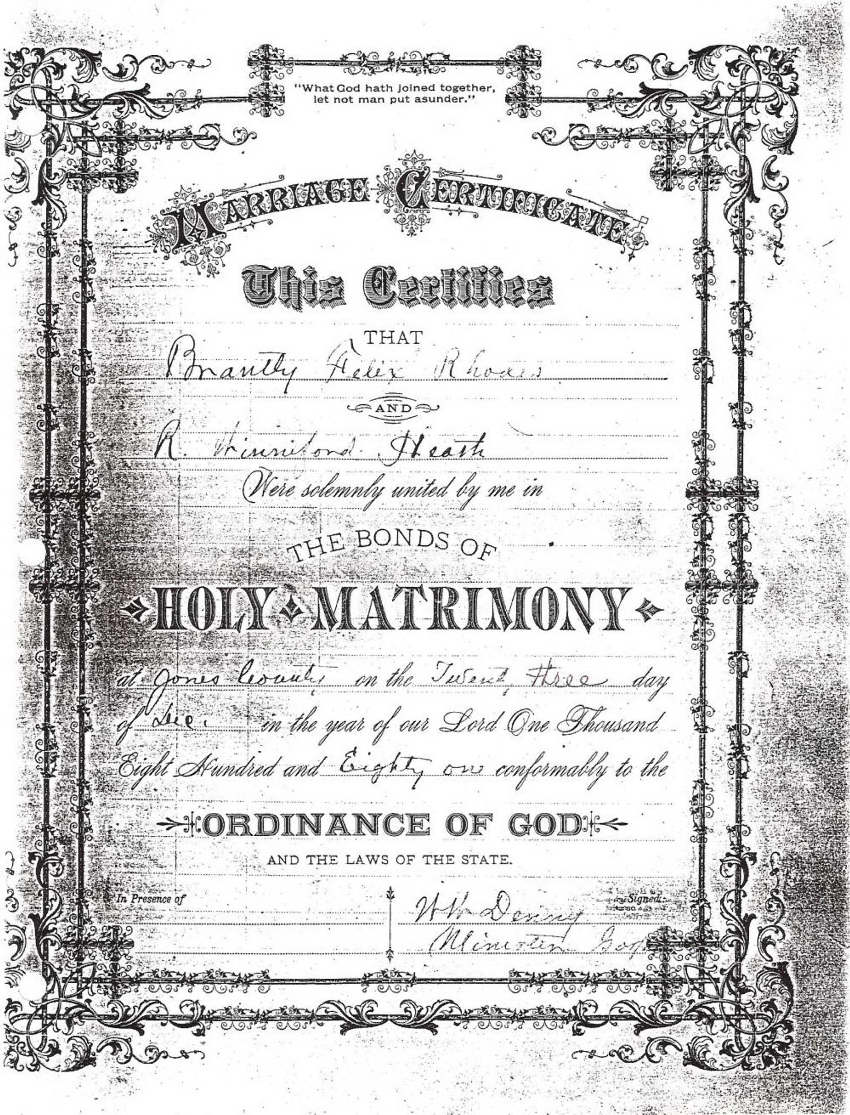 "What God hath joined together,
let not man put asunder."
MARRIAGE CERTIFICATE
This Certifies
THAT
Brantly Felix Rhodes
AND
R. Winniford Heath
Were solemnly united by me in
THE BONDS OF
HOLY MATRIMONY
at Jones County on the Twenty three day
of Dec. in the year of our Lord One Thousand
Eight Hundred and Eighty one conformably to the
ORDINANCE OF GOD
AND THE LAWS OF THE STATE.
In Presence of
Signed:
Denny
Minister